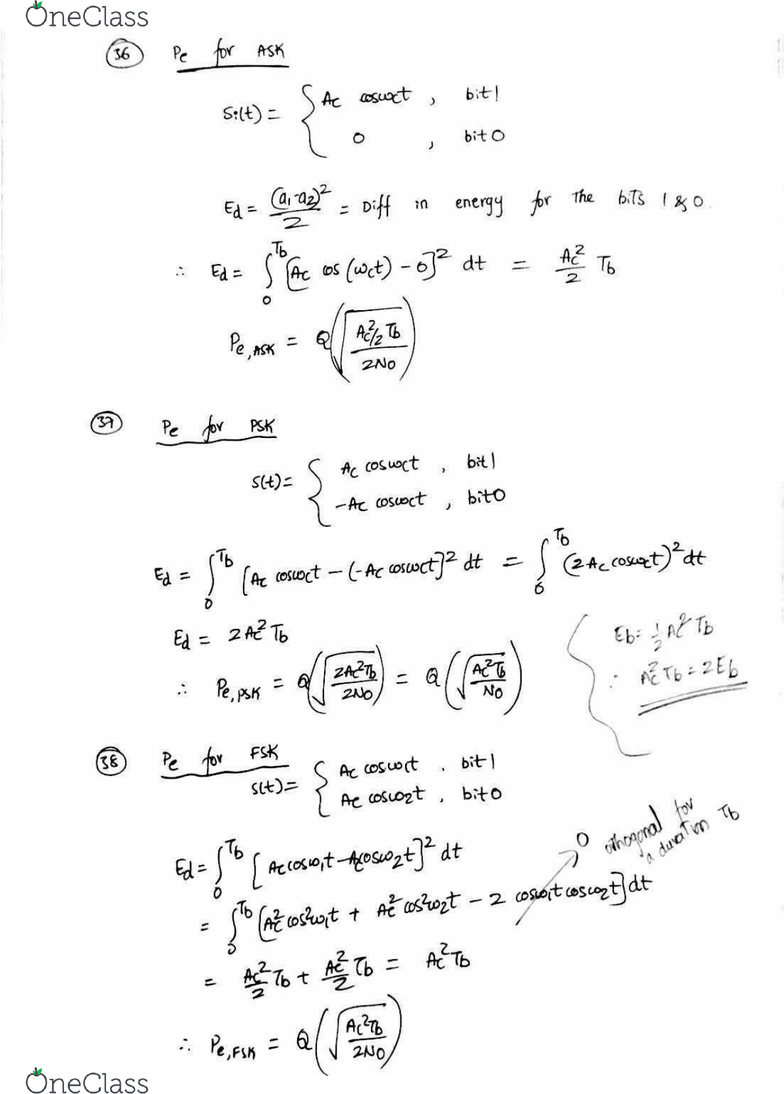 OneClass
36 Pe for ASK
Si(t) = { Ac cosωct , bit 1
0 , bit 0
Ed = (a1-a2)²/2 = Diff in energy for the bits 1 & 0.
∴ Ed = ∫₀^Tb [Ac cos(ωct) - 0]² dt = Ac²/2 Tb
Pe,ASK = Q(√(Ac²/2 Tb / 2N0))
37 Pe for PSK
s(t) = { Ac cosωct , bit 1
-Ac cosωct , bit 0
Ed = ∫₀^Tb [Ac cosωct - (-Ac cosωct]² dt = ∫₀^Tb (2Ac cosωct)² dt
Ed = 2Ac² Tb
Eb = ½ Ac² Tb
∴ Pe,PSK = Q(√(2Ac²Tb / 2N0)) = Q(√(Ac²Tb / N0))
∴ Ac² Tb = 2Eb
38 Pe for FSK
s(t) = { Ac cosω1t , bit 1
Ac cosω2t , bit 0
Ed = ∫₀^Tb [Ac cosω1t - Ac cosω2t]² dt
0 orthogonal for a duration Tb
= ∫₀^Tb [Ac² cos²ω1t + Ac² cos²ω2t - 2 cosω1t cosω2t] dt
= Ac²/2 Tb + Ac²/2 Tb = Ac² Tb
∴ Pe,FSK = Q(√(Ac²Tb / 2N0))
OneClass